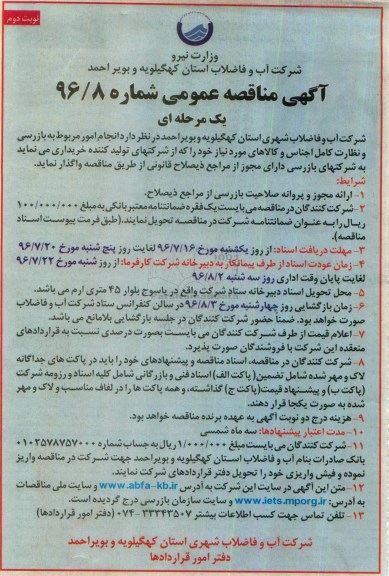 نوبت دوم
وزارت نیرو
شرکت آب و فاضلاب استان کهگیلویه و بویر احمد
آگهی مناقصه عمومی شماره ۹۶/۸
یک مرحله ای
شرکت آب و فاضلاب شهری استان کهگیلویه و بویراحمد در نظر دارد انجام امور مربوط به بازرسی
و نظارت کامل اجناس و کالاهای مورد نیاز خود را که از شرکتهای تولید کننده خریداری می نماید
به شرکتهای بازرسی دارای مجوز از مراجع ذیصلاح قانونی از طریق مناقصه واگذار نماید.
شرایط:
۱- ارائه مجوز و پروانه صلاحیت بازرسی از مراجع ذیصلاح.
۲- شرکت کنندگان در مناقصه می بایست یک فقره ضمانتنامه معتبر بانکی به مبلغ ۱۰۰/۰۰۰/۰۰۰
ریال را به عنوان ضمانتنامه شرکت در مناقصه تحویل نمایند.(طبق فرمت پیوست اسناد
مناقصه).
۳- مهلت دریافت اسناد: از روز یکشنبه مورخ ۹۶/۷/۱۶ لغایت روز پنج شنبه مورخ ۹۶/۷/۲۰
۴- زمان عودت اسناد از طرف پیمانکار به دبیرخانه شرکت کارفرما: از روز شنبه مورخ ۹۶/۷/۲۲
لغایت پایان وقت اداری روز سه شنبه ۹۶/۸/۲
۵- محل تحویل اسناد دبیرخانه ستاد شرکت واقع در یاسوج بلوار ۴۵ متری ارم می باشد.
۶- زمان بازگشایی روز چهارشنبه مورخ ۹۶/۸/۳ در سالن کنفرانس ستاد شرکت آب و فاضلاب
صورت خواهد بود. ضمنا حضور شرکت کنندگان در جلسه بازگشایی بلامانع می باشد.
۷- اعلام قیمت از طرف شرکت کنندگان می بایست بصورت درصدی نسبت به قراردادهای
منعقده این شرکت با فروشندگان صورت پذیرد.
۸- شرکت کنندگان در مناقصه، اسناد مناقصه و پیشنهادهای خود را باید در پاکت های جداگانه
لاک و مهر شده شامل تضمین( پاکت الف) اسناد فنی و بازرگانی شامل کلیه اسناد و رزومه شرکت
(پاکت ب) و پیشنهاد قیمت(پاکت ج) گذاشته، و همه پاکت ها را در لفاف مناسب و لاک و مهر
شده به صورت یکجا قرار دهند.
۹- هزینه درج دو نوبت آگهی به عهده برنده مناقصه خواهد بود.
۱۰- مدت اعتبار پیشنهادها: سه ماه شمسی
۱۱- شرکت کنندگان می بایست مبلغ ۱/۰۰۰/۰۰۰ ریال به حساب شماره ۰۱۰۲۵۷۸۷۵۷۰۰۰
بانک صادرات بنام آب و فاضلاب استان کهگیلویه و بویراحمد جهت شرکت در مناقصه واریز
نموده و فیش واریزی خود را تحویل دفتر قراردادهای شرکت نمایند.
۱۲- متن این آگهی در سایت این شرکت به آدرس www.abfa-kb.ir و سایت ملی مناقصات
به آدرس: www.iets.mporg.ir و سایت سازمان بازرسی درج گردیده است.
۱۳- تلفن تماس جهت کسب اطلاعات بیشتر ۳۳۳۴۳۵۰۷-۰۷۴ (دفتر امور قراردادها)
شرکت آب و فاضلاب شهری استان کهگیلویه و بویراحمد
دفتر امور قراردادها